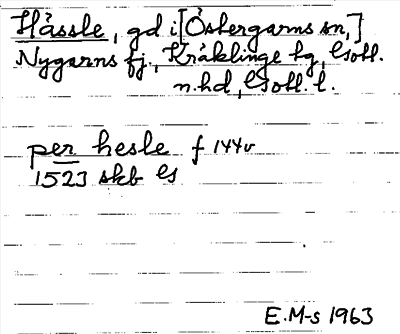 Hässle, gd i [Östergarns sn,]
Nygarns fj., Kräklinge tg, Gotl.
n.hd, Gotl. l.
per hesle f 144v
1523 skb G
E.M-s 1963